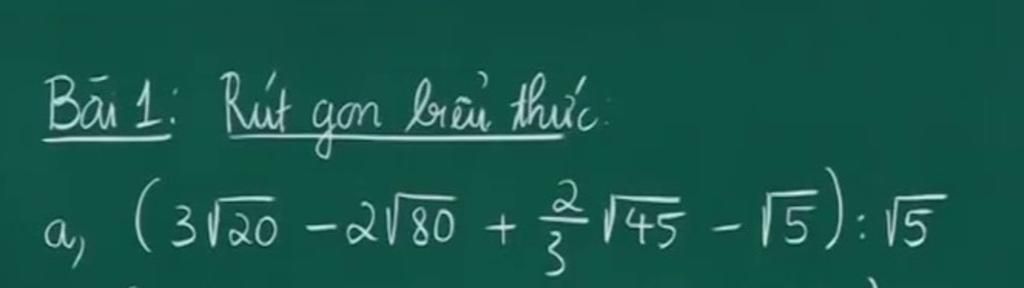 Bài 1: Rút gọn biểu thức:
a, (3√20 - 2√80 + 2/3 √45 - √5) : √5